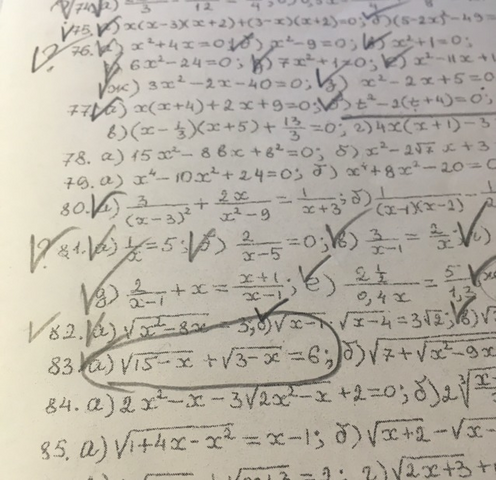 75. а) x(x-3)(x+2)+(3-x)(x+2)=0; б)(5-2x)²-49=
76. а) x²+4x=0; б) x²-9=0; в) x²+1=0;
г) 6x²-24=0; д) 7x²+1=0; е) x²-11x+1
ж) 3x²-2x-40=0; з) x²-2x+5=0
77. а) x(x+4)+2x+9=0; б) t²-2(t+4)=0;
в)(x-1/3)(x+5)+13/3=0; г) 4x(x+1)-3
78. а) 15x²-8bx+b²=0; б) x²-2√2 x+3
79. а) x⁴-10x²+24=0; б) x⁴+8x²-20=0
80. а) 3/(x-3)²+2x/(x²-9)=1/(x+3); б) 1/((x-1)(x-2))-
81. а) 1/x=5; б) 2/(x-5)=0; в) 3/(x-1)=2/x; г)
д) 2/(x-1)+x=(x+1)/(x-1); е)
82. а) √(x²-8x)=3; б) √(x-1)·√(x-4)=3√2; в) √
83. а) √(15-x)+√(3-x)=6; б) √(7+√(x²-9x
84. а) 2x²-x-3√(2x²-x)+2=0; б) 2∛(x
85. а) √(1+4x-x²)=x-1; б) √(x+2)-√(x-
=2; г) √(2x+3)+